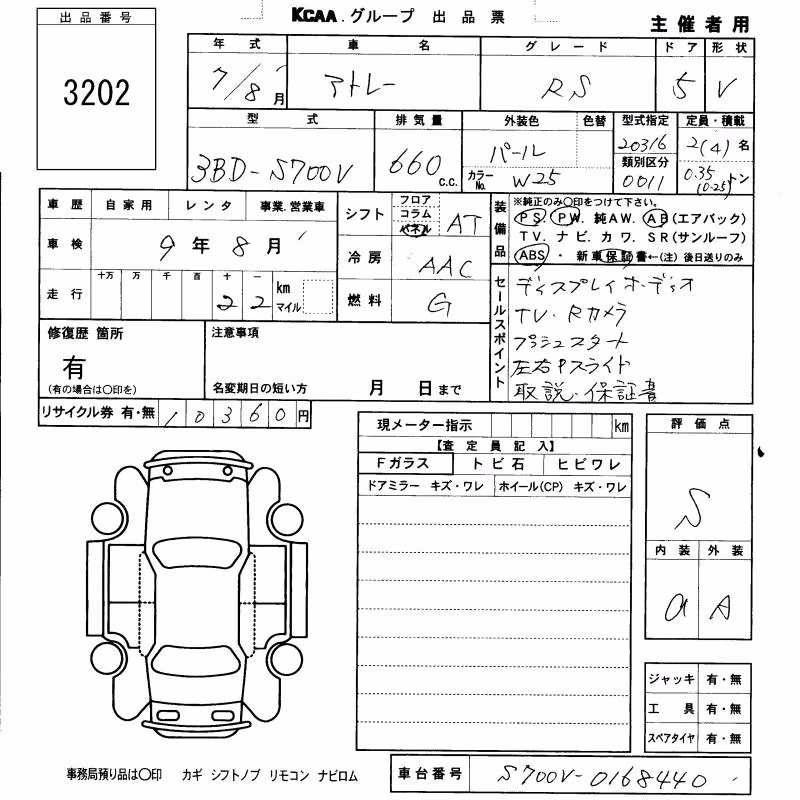 KCAA.グループ 出品票
主催者用
出品番号
3202
年式 車名 グレード ドア 形状
7/8月 アトレー RS 5 V
型式 排気量 外装色 色替 型式指定 定員・積載
3BD-S700V 660c.c. パール 20316 2(4)名
カラーNo. W25 類別区分 0011 0.35(0.25)トン
車歴 自家用 レンタ 事業.営業車
車検 9年8月
走行 十万 万 千 百 十 一 km マイル
22
シフト フロア コラム パネル AT
冷房 AAC
燃料 G
装備品
※純正のみ○印をつけて下さい。
PS. PW. 純AW. AB(エアバック)
TV. ナビ. カワ. SR(サンルーフ)
ABS ・ 新車保証書←(注) 後日送りのみ
セールスポイント
ディスプレイオーディオ
TV・Rカメラ
プッシュスタート
左右Pスライド
取説・保証書
修復歴 箇所
有
(有の場合は○印を)
注意事項
名変期日の短い方 月 日まで
リサイクル券 有・無 10360円
現メーター指示 km
【査定員記入】
Fガラス トビ石 ヒビワレ
ドアミラー キズ・ワレ ホイール(CP) キズ・ワレ
評価点
S
内装 外装
a A
ジャッキ 有・無
工具 有・無
スペアタイヤ 有・無
事務局預り品は○印 カギ シフトノブ リモコン ナビロム
車台番号 S700V-0168440